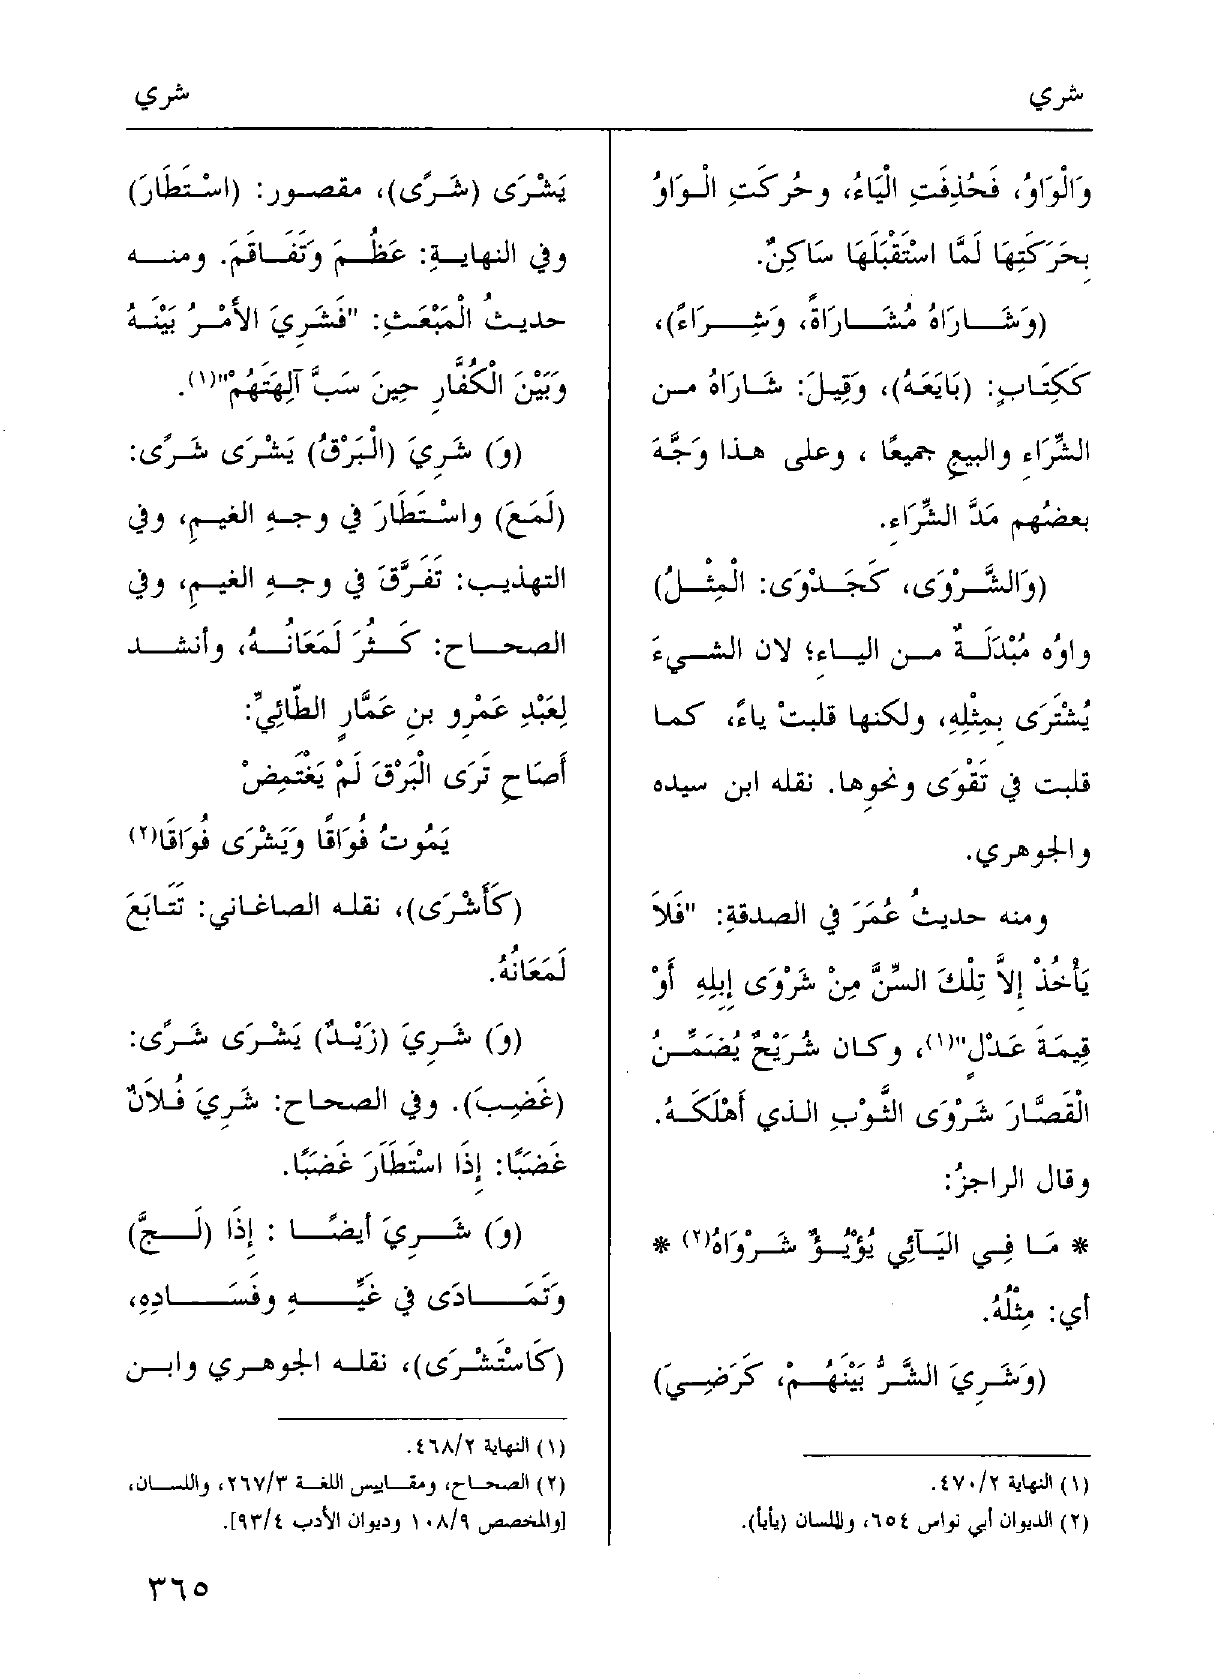 شري
شري
وَالْوَاوُ، فَحُذِفَتِ الْيَاءُ، وحُرِكَتِ الْوَاوُ
بِحَرَكَتِهَا لَمَّا اسْتَقْبَلَهَا سَاكِنٌ.
(وَشَارَاهُ مُشَارَاةً، وَشِرَاءً)،
كَكِتَابٍ: (بَايَعَهُ)، وَقِيلَ: شَارَاهُ من
الشِّرَاءِ والبيعِ جميعًا ، وعلى هذا وَجَّهَ
بعضُهم مَدَّ الشِّرَاءِ.
(وَالشَّرْوَى، كَجَدْوَى: الْمِثْلُ)
واوُه مُبْدَلَةٌ من الياءِ؛ لان الشيءَ
يُشْتَرَى بِمِثْلِهِ، ولكنها قلبتْ ياءً، كما
قلبت في تَقْوَى ونحوِها. نقله ابن سيده
والجوهري.
ومنه حديثُ عُمَرَ في الصدقةِ: "فَلاَ
يَأْخُذْ إلاَّ تِلْكَ السِّنَّ مِنْ شَرْوَى إِبِلِهِ أَوْ
قِيمَةَ عَدْلٍ"(١)، وكان شُرَيْحٌ يُضَمِّنُ
الْقَصَّارَ شَرْوَى الثَّوْبِ الذي أَهْلَكَهُ.
وقال الراجزُ:
* مَا فِي الْيَآئِي يُؤْيُؤٌ شَرْوَاهُ(٢) *
أي: مِثْلُهُ.
(وَشَرِيَ الشَّرُّ بَيْنَهُمْ، كَرَضِيَ)
(١) النهاية ٤٧٠/٢.
(٢) الديوان أبي نواس ٦٥٤، واللسان (يأيأ).
يَشْرَى (شَرًى)، مقصور: (اسْتَطَارَ)
وفي النهايةِ: عَظُمَ وَتَفَاقَمَ. ومنه
حديثُ الْمَبْعَثِ: "فَشَرِيَ الأَمْرُ بَيْنَهُ
وَبَيْنَ الْكُفَّارِ حِينَ سَبَّ آلِهَتَهُمْ"(١).
(وَ) شَرِيَ (الْبَرْقُ) يَشْرَى شَرًى:
(لَمَعَ) واسْتَطَارَ في وجهِ الغيمِ، وفي
التهذيبِ: تَفَرَّقَ في وجهِ الغيمِ، وفي
الصحاحِ: كَثُرَ لَمَعَانُهُ، وأنشد
لِعَبْدِ عَمْرِو بنِ عَمَّارٍ الطَّائِيِّ:
أَصَاحِ تَرَى الْبَرْقَ لَمْ يَغْتَمِضْ
يَمُوتُ فُوَاقًا وَيَشْرَى فُوَاقَا(٢)
(كَأَشْرَى)، نقله الصاغاني: تَتَابَعَ
لَمَعَانُهُ.
(وَ) شَرِيَ (زَيْدٌ) يَشْرَى شَرًى:
(غَضِبَ). وفي الصحاحِ: شَرِيَ فُلاَنٌ
غَضَبًا: إِذَا اسْتَطَارَ غَضَبًا.
(وَ) شَرِيَ أيضًا : إِذَا (لَجَّ)
وَتَمَادَى في غَيِّهِ وفَسَادِهِ،
(كَاسْتَشْرَى)، نقله الجوهري وابن
(١) النهاية ٤٦٨/٢.
(٢) الصحاح، ومقاييس اللغة ٢٦٧/٣، واللسان،
[والمخصص ١٠٨/٩ وديوان الأدب ٩٣/٤].
٣٦٥